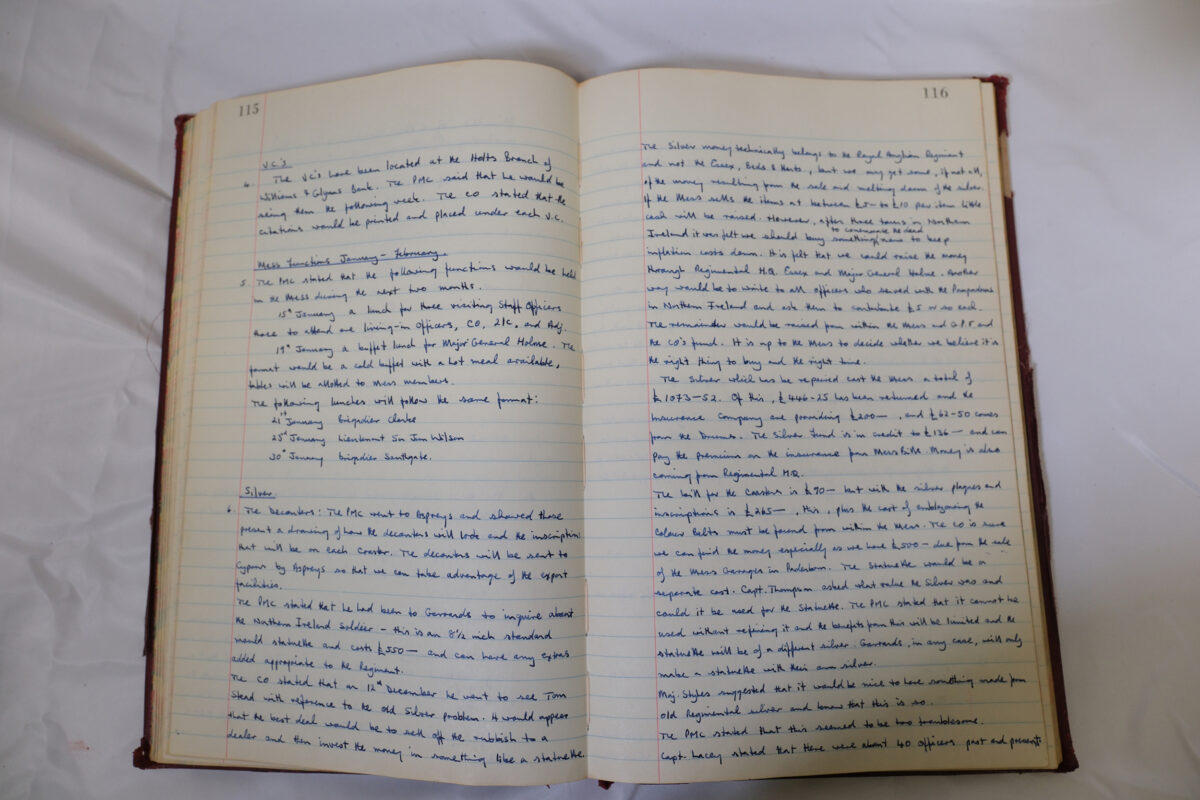 115
V.C.'s
4. The VC's have been located at the Holts Branch of
Williams & Glynns Bank. The PMC said that he would be
seing them the following week. The CO stated that the
citations would be printed and placed under each V.C.
Mess Functions January - February.
5. The PMC stated that the following functions would be held
in the Mess during the next two months.
15th January a lunch for three visiting Staff Officers
those to attend are living-in Officers, CO, 2IC, and Adj.
19th January a buffet lunch for Major General Holme. The
format would be a cold buffet with a hot meal available,
tables will be allotted to Mess members.
The following lunches will follow the same format:
21st January Brigadier Clarke
25th January Lieutenant Sir Jim Wilson
30th January Brigadier Southgate.
Silver.
6. The Decanters: The PMC went to Aspreys and showed those
present a drawing of how the decanters will look and the inscription
that will be on each coaster. The decanters will be sent to
Cyprus by Aspreys so that we can take advantage of the export
facilities.
The PMC stated that he had been to Garrards to inquire about
the Northern Ireland Soldier - this is an 8½ inch standard
mould statuette and costs £550— and can have any extras
added appropriate to the Regiment.
The CO stated that on 12th December he went to see Tom
Stead with reference to the old Silver problem. It would appear
that the best deal would be to sell off the rubbish to a
dealer and then invest the money in something like a statuette.
116
The Silver money technically belongs to the Royal Anglian Regiment
and not the Essex, Beds & Herts, but we may get some, if not all,
of the money resulting from the sale and melting down of the silver.
If the Mess sells the items at between £5— to £10 per item little
cash will be raised. However, after three tours in Northern
Ireland it was felt we should buy something to commemorate the dead now to keep
inflation costs down. It is felt that we could raise the money
through Regimental H.Q. Essex and Major General Holme. Another
way would be to write to all officers who served with the Pompadours
in Northern Ireland and ask them to contribute £5 or so each.
The remainder would be raised from within the Mess and G.P.F. and
the CO's fund. It is up to the Mess to decide whether we believe it is
the right thing to buy and the right time.
The Silver which has be repaired cost the Mess a total of
£1073-52. Of this, £446-25 has been returned and the
Insurance Company are providing £200—, and £62-50 comes
from the Drums. The Silver Fund is in credit to £136— and can
pay the premium on the insurance from Mess Bills. Money is also
coming from Regimental H.Q.
The bill for the Coasters is £90— but with the silver plaques and
inscriptions is £265—, this, plus the cost of emblazoning the
Colour Belts must be found from within the Mess. The CO is sure
we can find the money especially as we have £500— due from the sale
of the Mess Garages in Paderborn. The Statuette would be a
separate cost. Capt. Thompson asked what value the Silver was and
could it be used for the Statuette. The PMC stated that it cannot be
used without refining it and the benefits from this will be limited and the
statuette will be of a different silver. Garrards, in any case, will only
make a statuette with their own silver.
Maj. Styles suggested that it would be nice to have something made from
old Regimental silver and known that this is so.
The PMC stated that this seemed to be too troublesome.
Capt. Lacey stated that there were about 40 officers past and present